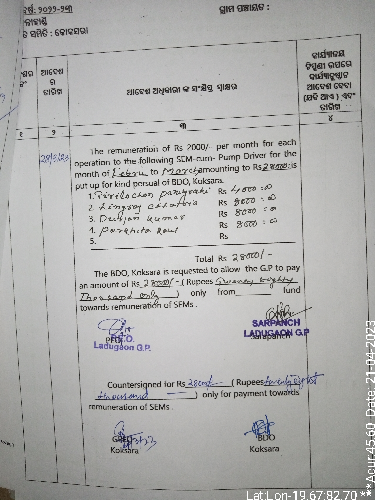 ବର୍ଷ: ୨୦୨୨-୨୩
ଗ୍ରାମ ପଞ୍ଚାୟତ :
ସମିତି : କୋକସରା
ଆଦେଶ
ର
ତାରିଖ
ଆଦେଶ ଅଧିକାରୀ ଙ୍କ ସଂକ୍ଷିପ୍ତ ସ୍ୱାକ୍ଷର
କାର୍ଯ୍ୟାଳୟ
ଟିପ୍ପଣୀ ଉପରେ
କାର୍ଯ୍ୟାନୁଷ୍ଠାନ
ଆଦେଶ ଦେବା
(ଯଦି ଥାଏ) ଏବଂ
ତାରିଖ
୧ ୨ ୩ ୪
The remuneration of Rs 2000/- per month for each
operation to the following SEM-cum- Pump Driver for the
month of Febru to March amounting to Rs 28000 is
put up for kind persual of BDO, Koksara.
1. Trilochan Rs 4000=00
2. Rs 8000=00
3. kumar Rs 8000=00
4. Rs 8000=00
5. Rs
Total Rs 28000/-
The BDO, Koksara is requested to allow the G.P to pay
an amount of Rs 28000/- ( Rupees Twenty eight
Thousand only ) only from fund
towards remuneration of SEMs .
P.E.O.
Ladugaon G.P.
SARPANCH
LADUGAON G.P
Sarapanch
Countersigned for Rs 28000/- ( Rupees twenty eight
thousand ) only for payment towards
remuneration of SEMs .
GPEO
Koksara
BDO
Koksara
Lat:Lon-19.67:82.70 ***Acur:45.60 Date: 21-04-2023